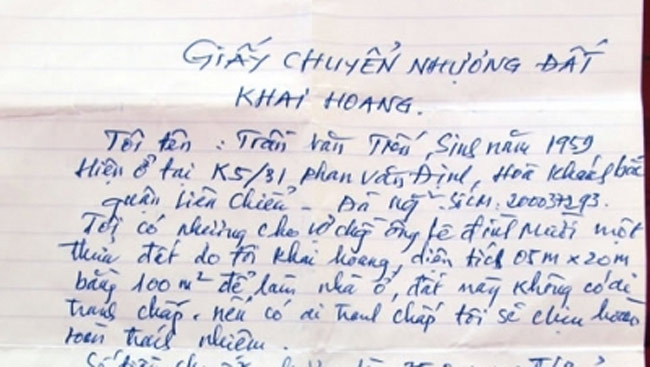 GIẤY CHUYỂN NHƯỢNG ĐẤT
KHAI HOANG.
Tôi tên : Trần Văn Trấn, Sinh năm 1959
Hiện ở tại K5/31 Phan Văn Định, Hoà Khánh bắc
quận Liên Chiểu - Đà Nẵng. Số CM: 200037293.
Tôi có nhường cho vợ chồng ông Lê Đình Mười một
thửa đất do tôi khai hoang, diện tích 05m x 20m
bằng 100m² để làm nhà ở, đất này không có ai
tranh chấp. nếu có ai tranh chấp tôi sẽ chịu hoàn
toàn trách nhiệm.